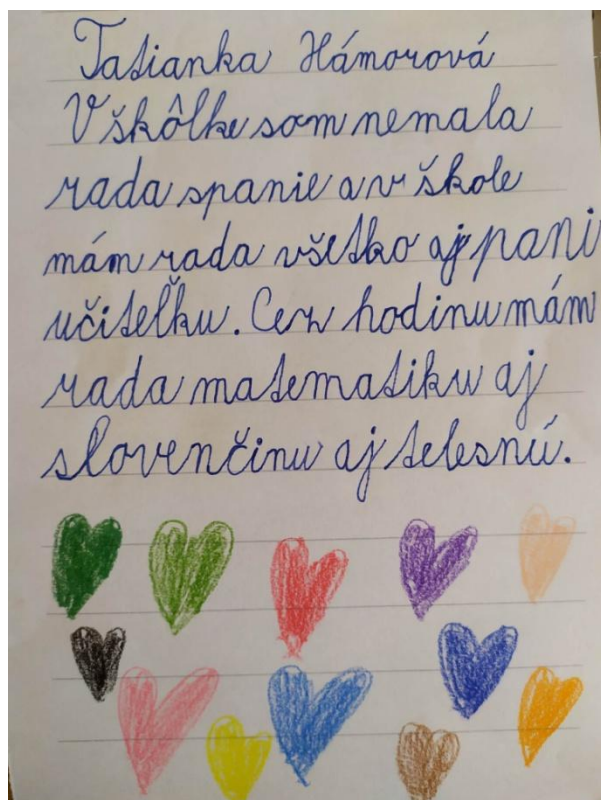 Tatianka Hámorová
V škôlke som nemala
rada spanie a v škole
mám rada všetko aj pani
učiteľku. Cez hodinu mám
rada matematiku aj
slovenčinu aj telesnú.